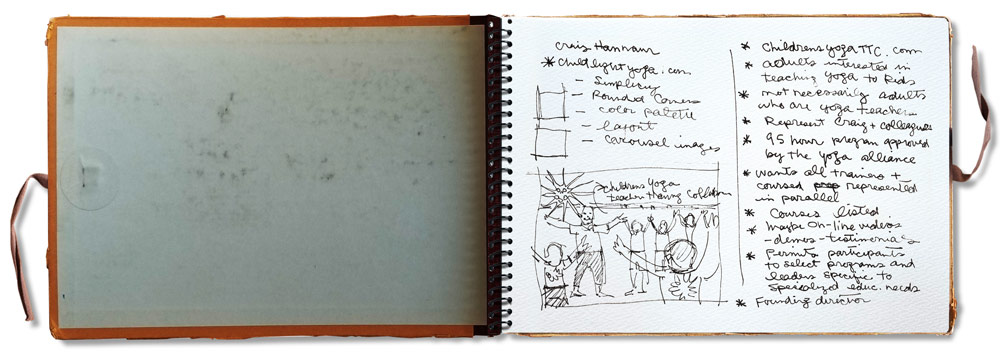 Craig Hannaur
* childlightyoga.com
- Simplicity
- Rounded Corners
- color palette
- layout
- carousel images
childrens yoga
teacher training
* childrensyogaTTC.com
* adults interested in
teaching yoga to kids
* not necessarily adults
who are yoga teachers
* Represent Craig + colleagues
* 95 hour program approved
by the yoga alliance
* wants all trainers +
courses represented
in parallel
* Courses listed
* Maybe on-line videos
- demos - testimonials
* Permits participants
to select programs and
leaders specific to
specialized educ. needs
* Founding director